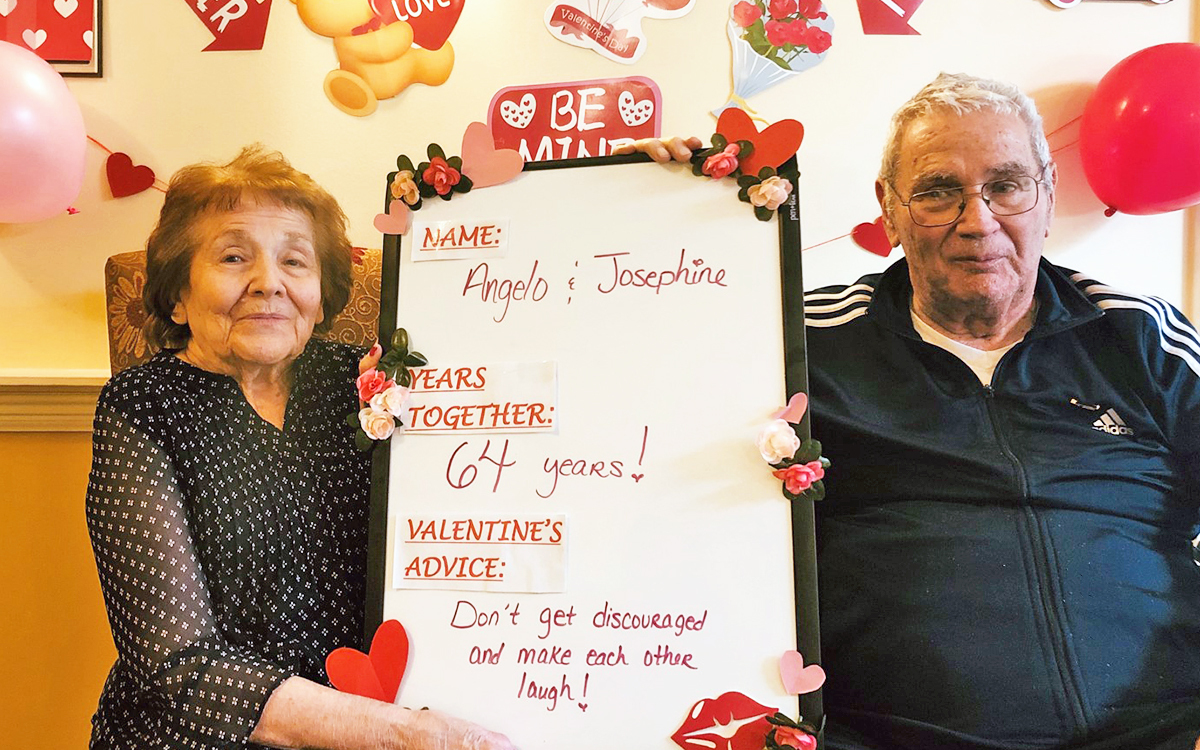 LOVE
Valentine's Day
BE
MINE
NAME:
Angelo & Josephine
YEARS
TOGETHER:
64 years!
VALENTINE'S
ADVICE:
Don't get discouraged
and make each other
laugh!
adidas